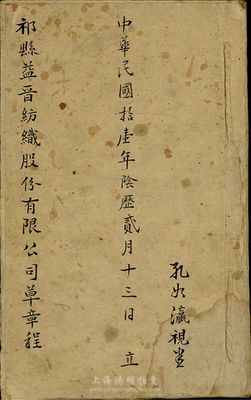 孔如瀛視堂
中華民國拾壹年陰歷貳月十三日 立
祁縣益晋紡織股份有限公司草章程
上海陽明拍賣